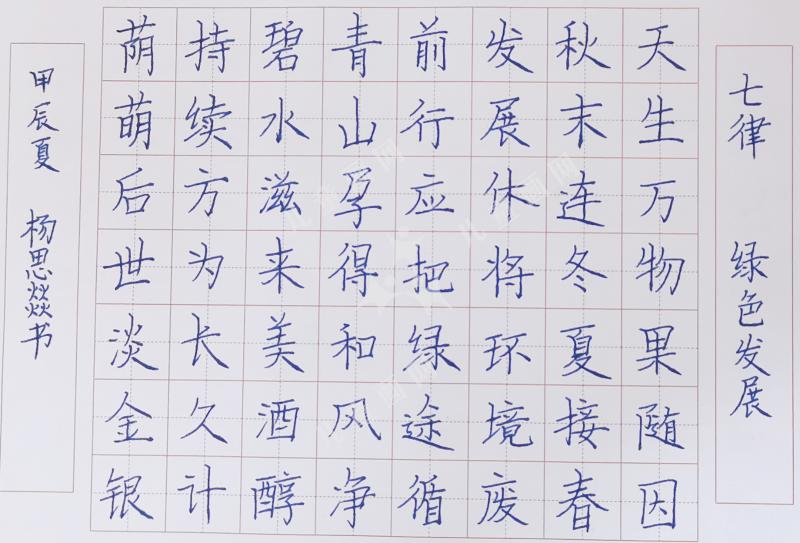 七律 绿色发展
天生万物果随因
秋末连冬夏接春
发展休将环境废
前行应把绿途循
青山孕得和风净
碧水滋来美酒醇
持续方为长久计
荫萌后世淡金银
甲辰夏 杨思燚书